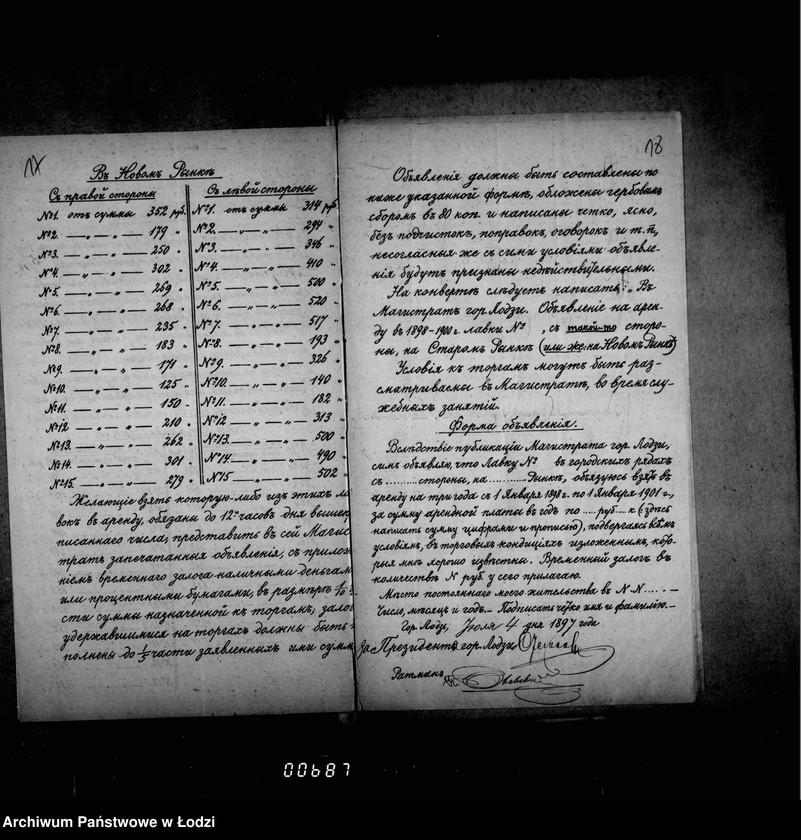 17
Въ Новомъ Рынкѣ
Съ правой стороны
№1. отъ суммы 352 руб.
№2. — „ — „ — 179 „
№3. — „ — „ — 250 „
№4. — „ — „ — 302 „
№5. — „ — „ — 269 „
№6. — „ — „ — 268 „
№7. — „ — „ — 235 „
№8. — „ — „ — 183 „
№9. — „ — „ — 171 „
№10. — „ — „ — 125 „
№11. — „ — „ — 150 „
№12. — „ — „ — 210 „
№13. — „ — „ — 262 „
№14. — „ — „ — 301 „
№15. — „ — „ — 279 „
Съ лѣвой стороны
№1. отъ суммы 314 руб.
№2. — „ — „ — 294 „
№3. — „ — „ — 346 „
№4. — „ — „ — 410 „
№5. — „ — „ — 500 „
№6. — „ — „ — 520 „
№7. — „ — „ — 517 „
№8. — „ — „ — 193 „
№9. — „ — „ — 326 „
№10. — „ — „ — 140 „
№11. — „ — „ — 182 „
№12 — „ — „ — 313 „
№13. — „ — „ — 500 „
№14 — „ — „ — 490 „
№15 — „ — „ — 502 „
Желающіе взять которую-либо изъ этихъ ла
вокъ въ аренду, обязаны до 12 часовъ дня вышепр
писаннаго числа, представить въ сей Магис
тратъ запечатанныя объявленія, съ прилож
ніемъ временнаго залога наличными деньгам
или процентными бумагами, въ размѣрѣ 1/10 ча
сти суммы назначенной къ торгамъ; залог
удержавшимися на торгахъ должны быть
полнены до 1/5 части заявленныхъ ими сумм
18
Объявленія должны быть составлены по
ниже указанной формѣ, обложены гербовымъ
сборомъ въ 80 коп. и написаны четко, ясно,
безъ подчистокъ, поправокъ, оговорокъ и т. п.,
несогласныя же съ сими условіями объявле-
нія будутъ признаны недѣйствительными.
На конвертѣ слѣдуетъ написать: „Въ
Магистратъ гор. Лодзи. Объявленіе на арен-
ду въ 1898-1900 г. лавки № , съ такой-то сторо-
ны, на Старомъ Рынкѣ (или же на Новомъ Рынкѣ)
Условія къ торгамъ могутъ быть раз-
сматриваемы въ Магистратѣ, во время слу-
жебныхъ занятій.
Форма объявленія.
Вслѣдствіе публикаціи Магистрата гор. Лодзи,
симъ объявляю, что Лавку № въ городскихъ рядахъ
съ ......... стороны, на ......... Рынкѣ, обязуюсь взять въ
аренду на три года съ 1 Января 1898 г. по 1 Января 1901 г.,
за сумму арендной платы въ годъ по .... руб. .. к (здѣсь
написать сумму цифрами и прописью), подвергаясь всѣмъ
условіямъ, въ торговыхъ кондиціяхъ изложеннымъ, кото-
рыя мнѣ хорошо извѣстны. Временный залогъ въ
количествѣ N руб. у сего прилагаю.
Мѣсто постояннаго моего жительства въ N N .... —
Число, мѣсяцъ и годъ. — Подписать четко имя и фамилію. —
Гор. Лодзь, Іюля 4 дня 1897 года
За Президента гор. Лодзи
Ратманъ
00687
Archiwum Państwowe w Łodzi